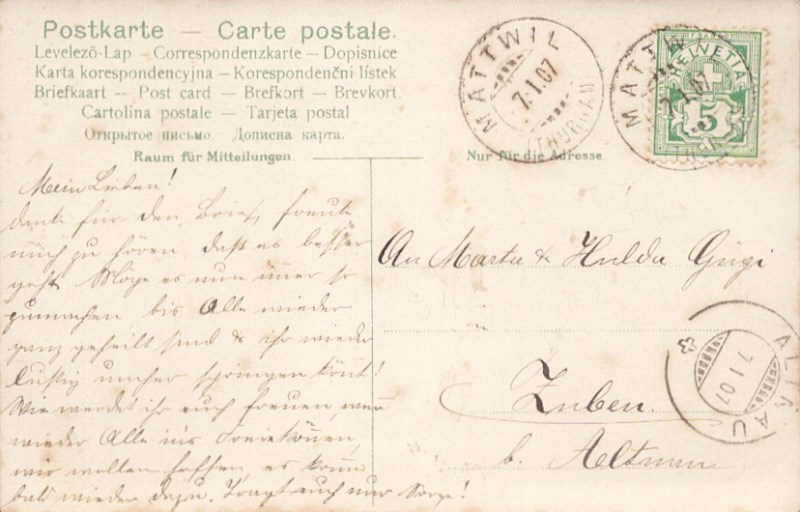 Postkarte — Carte postale.
Levelező-Lap — Correspondenzkarte — Dopisnice
Karta korespondencyjna — Korespondenční lístek
Briefkaart — Post card — Brefkort — Brevkort.
Cartolina postale — Tarjeta postal
Открытое письмо. Дописна карта.
Raum für Mitteilungen.
Nur für die Adresse.
MATTWIL
7.1.07
(THURGAU)
MATTWIL
7.1.07
HELVETIA
5
Mein Lieben!
danke für den Brief, freute
mich zu hören, daß es besser
geht. Möge es nun imer so
zumachen bis Alle wieder
ganz geheilt sind & ihr wieder
lustig umher springen könt!
Wie werdet ihr euch freuen, wenn
wieder Alle ins Freie können,
wir wollen hoffen, es komme
bald wieder dazu. Tragt auch nur Sorge!
An Marta & Hulda Gügi
in
Zuben.
b. Altnau
ALTNAU
7.1.07